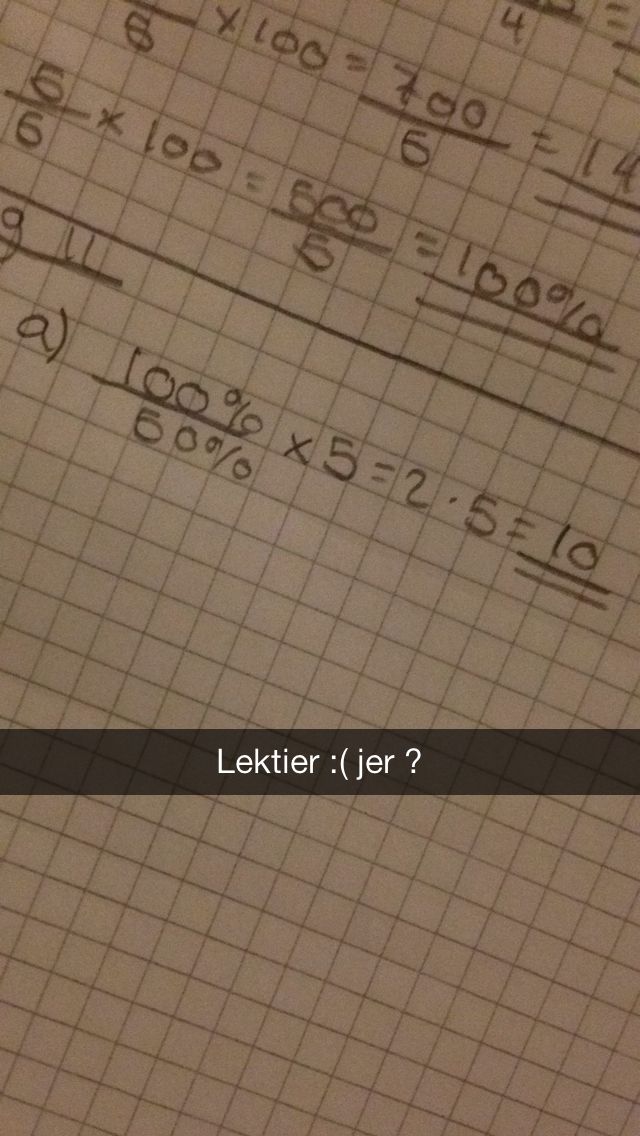 × 100 = 700/5 = 14
4 =
5/5 × 100 = 500/5 = 100%
g 11
a) 100%/50% × 5 = 2 · 5 = 10
Lektier :( jer ?